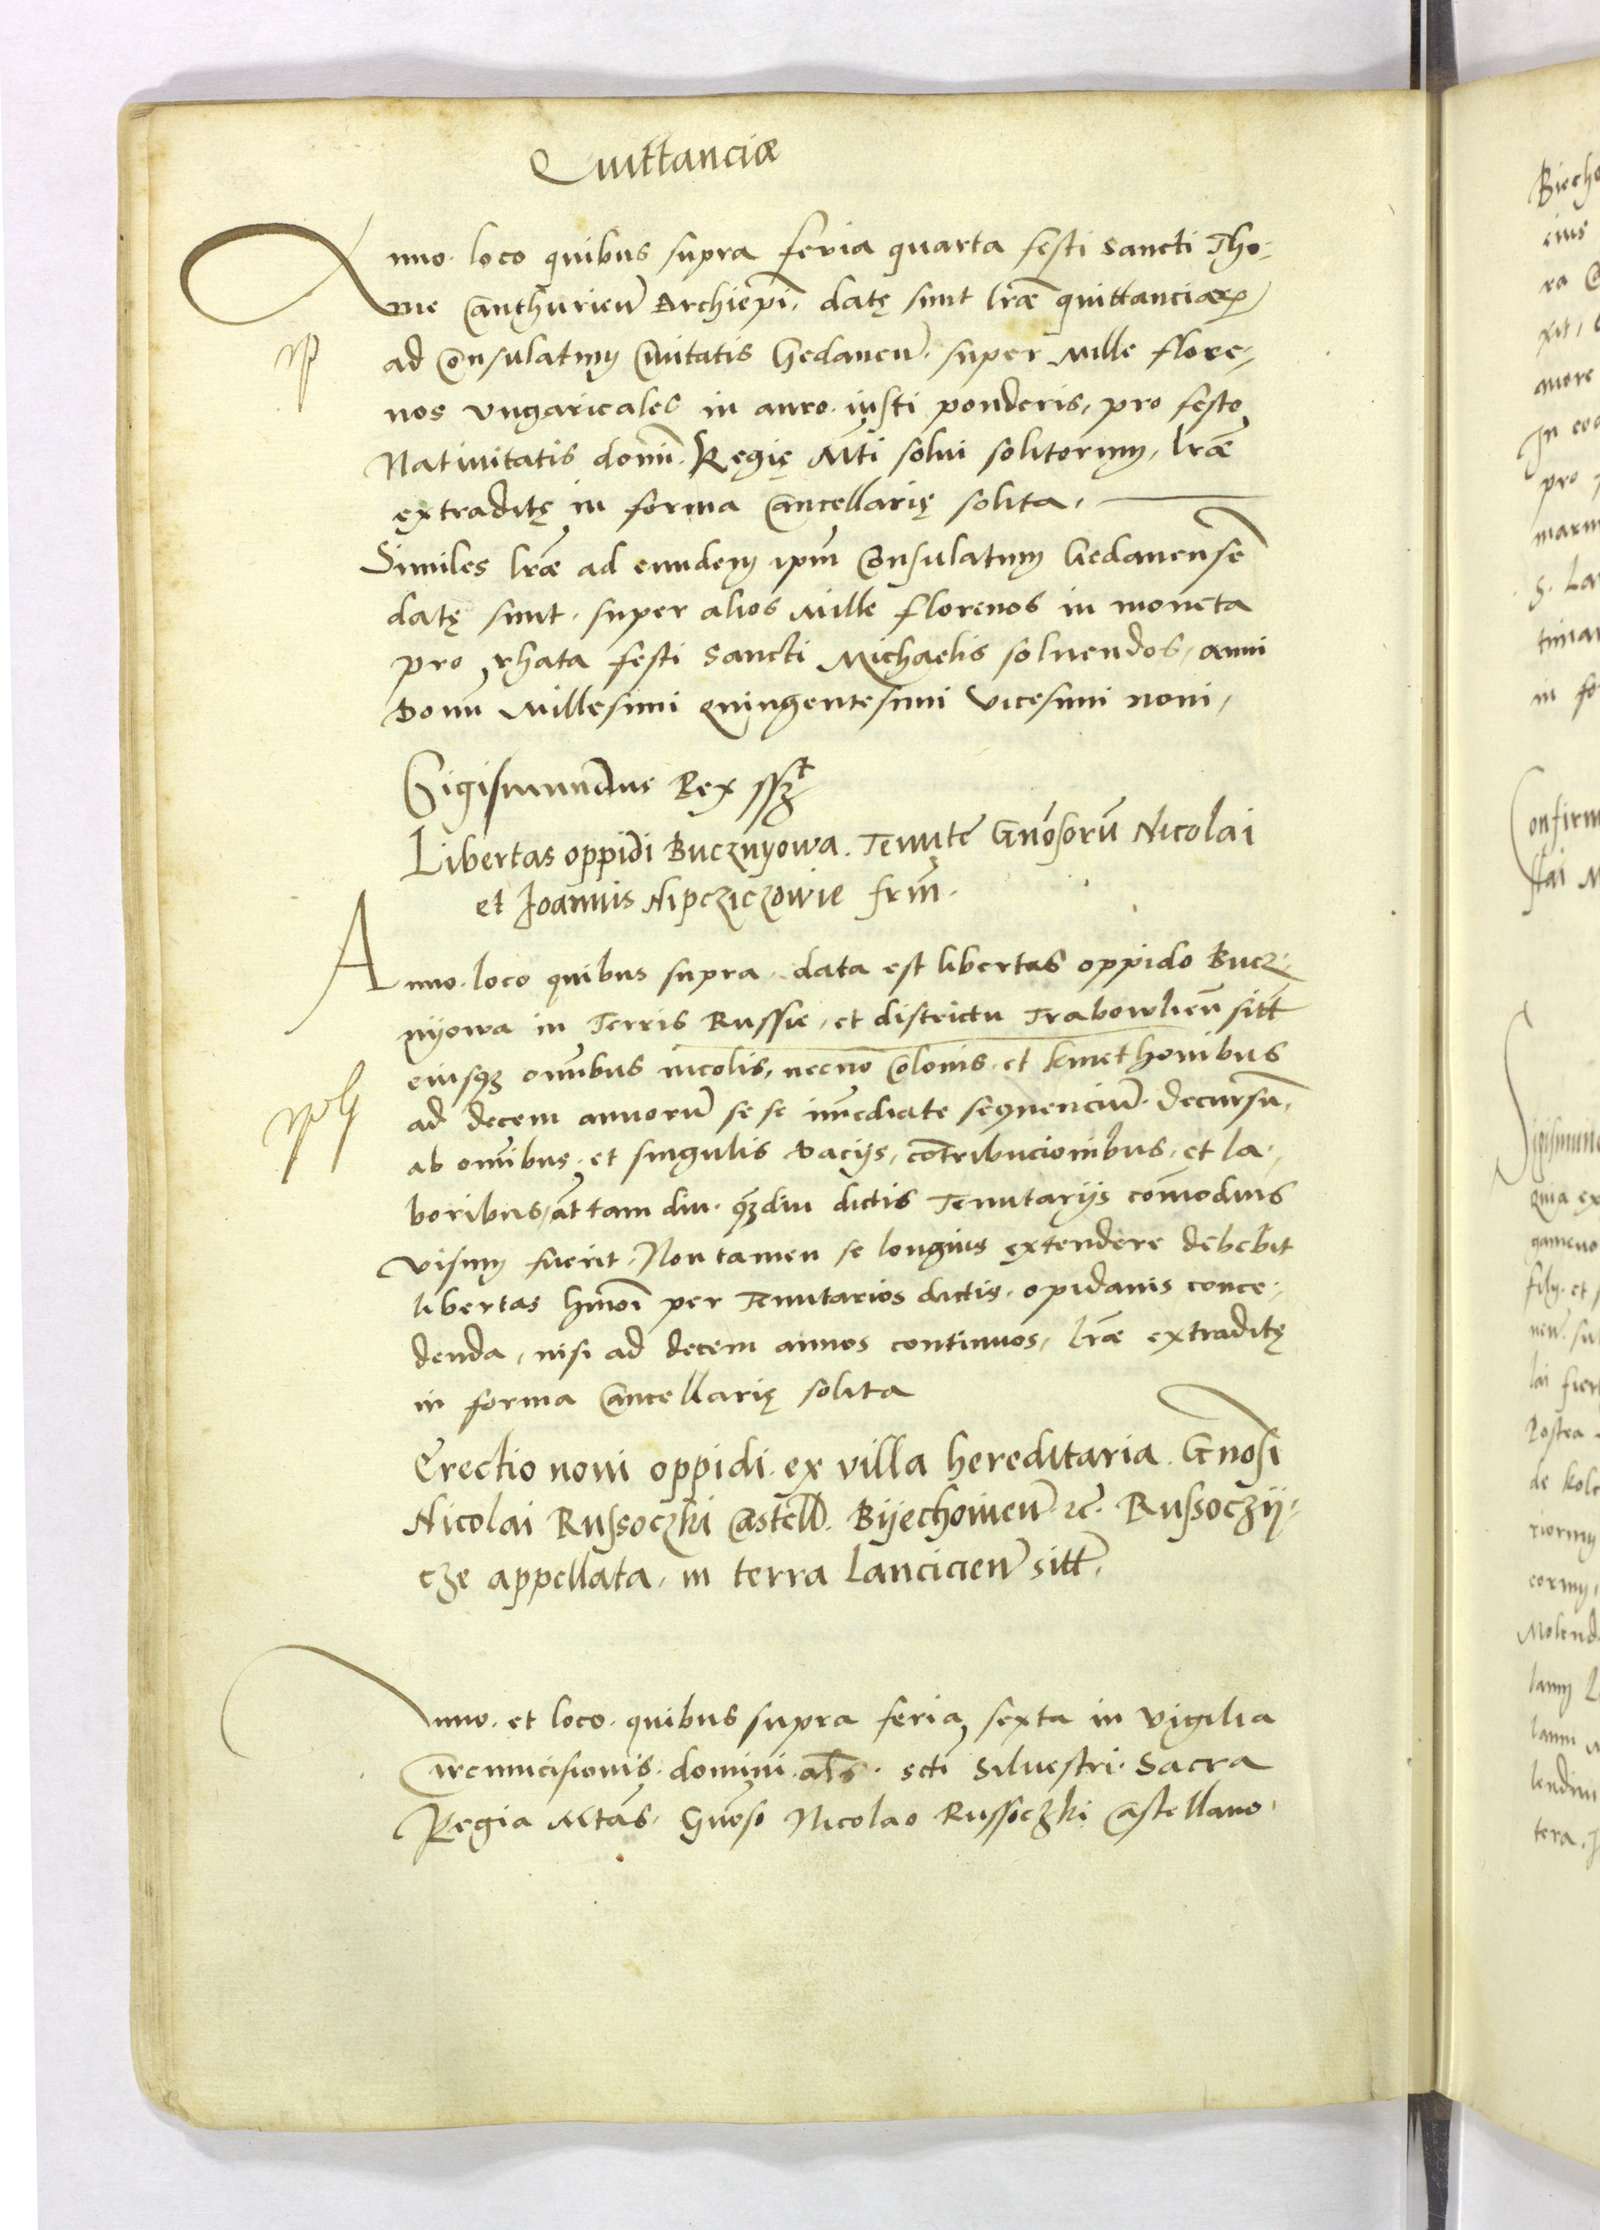 Quittanciæ
Anno loco quibus supra feria quarta festi Sancti Tho-
me Canthurien̄ Archiepī. datę sunt lræ quittanciaꝝ
ad Consulatum Civitatis Gedanen̄. super Mille flore-
nos Vngaricales in auro iusti ponderis, pro festo
Nativitatis domī. Regię M̄ti solvi solitorum, lræ
extraditę in forma Cancellarię solita.
Similes lræ ad eundem ipm̄ Consulatum Gedanensē
datę sunt. super alios Mille florenos in moneta
pro rhata festi Sancti Michaelis soluendos, anni
Domī Millesimi Quingentesimi Vicesimi noni,
Sigismundus Rex sszt
Libertas oppidi Bucznyowa. Tenutē Gn̄osorū Nicolai
et Joannis Nipcziczowie frm̄.
Anno. loco quibus supra. data est libertas oppido Bucz-
nyowa in Terris Russie, et districtu Trabowlien̄ sitt̄
eiusqʒ omībus incolis, necnō Colonis. et kmethonibus
ad decem annorū se se īmediate sequenciū. decursū,
ab omībus. et singulis dacijs, cōtribucionibus, et la-
boribus, aūt tam diu. qʒdiu dictis Tenutarijs cōmodius
visum fuerit. Non tamen se longius extendere debebit
libertas hm̄oī per Tenutarios dictis. opidanis conce-
denda, nisi ad decem annos continuos, lræ extraditę
in forma Cancellarię solita
Erectio novi oppidi. ex villa hereditaria. Gn̄osi
Nicolai Russoczki Castell̄. Byechovien̄ ꝛc̄. Russoczÿ-
cze appellata, in terra Lancicien̄ sitt̄.
Anno. et loco. quibus supra feria sexta in vigilia
Circumcisionis. domini. al̄s. scti Siluestri. Sacra
Regia M̄tas. Gn̄oso Nicolao Russoczki Castellano.